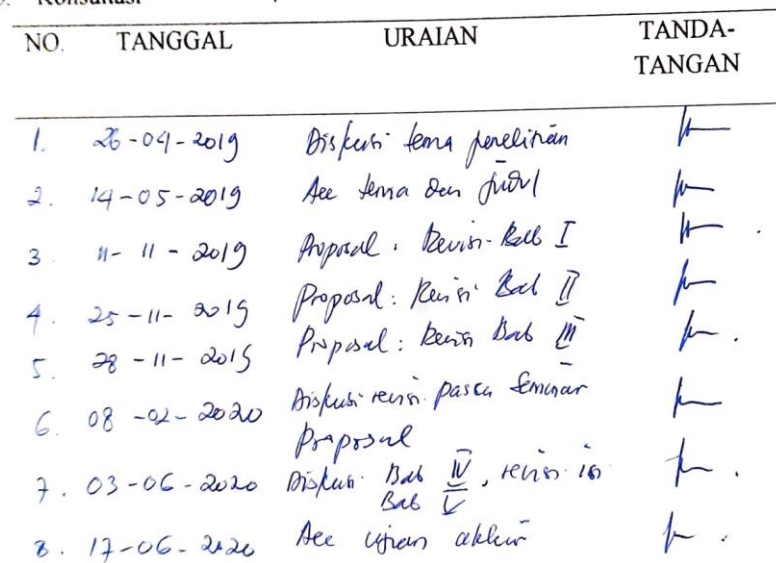 Konsultasi
NO. TANGGAL URAIAN TANDA-
TANGAN
1. 26-04-2019 Diskusi tema penelitian
2. 14-05-2019 Acc tema dan judul
3 11-11-2019 Proposal : Revisi Bab I
4. 25-11-2019 Proposal : Revisi Bab II
5. 28-11-2019 Proposal : Revisi Bab III
6. 08-02-2020 Diskusi revisi pasca seminar
proposal
7. 03-06-2020 Diskusi Bab IV, revisi isi
Bab V
8. 17-06-2020 Acc ujian akhir